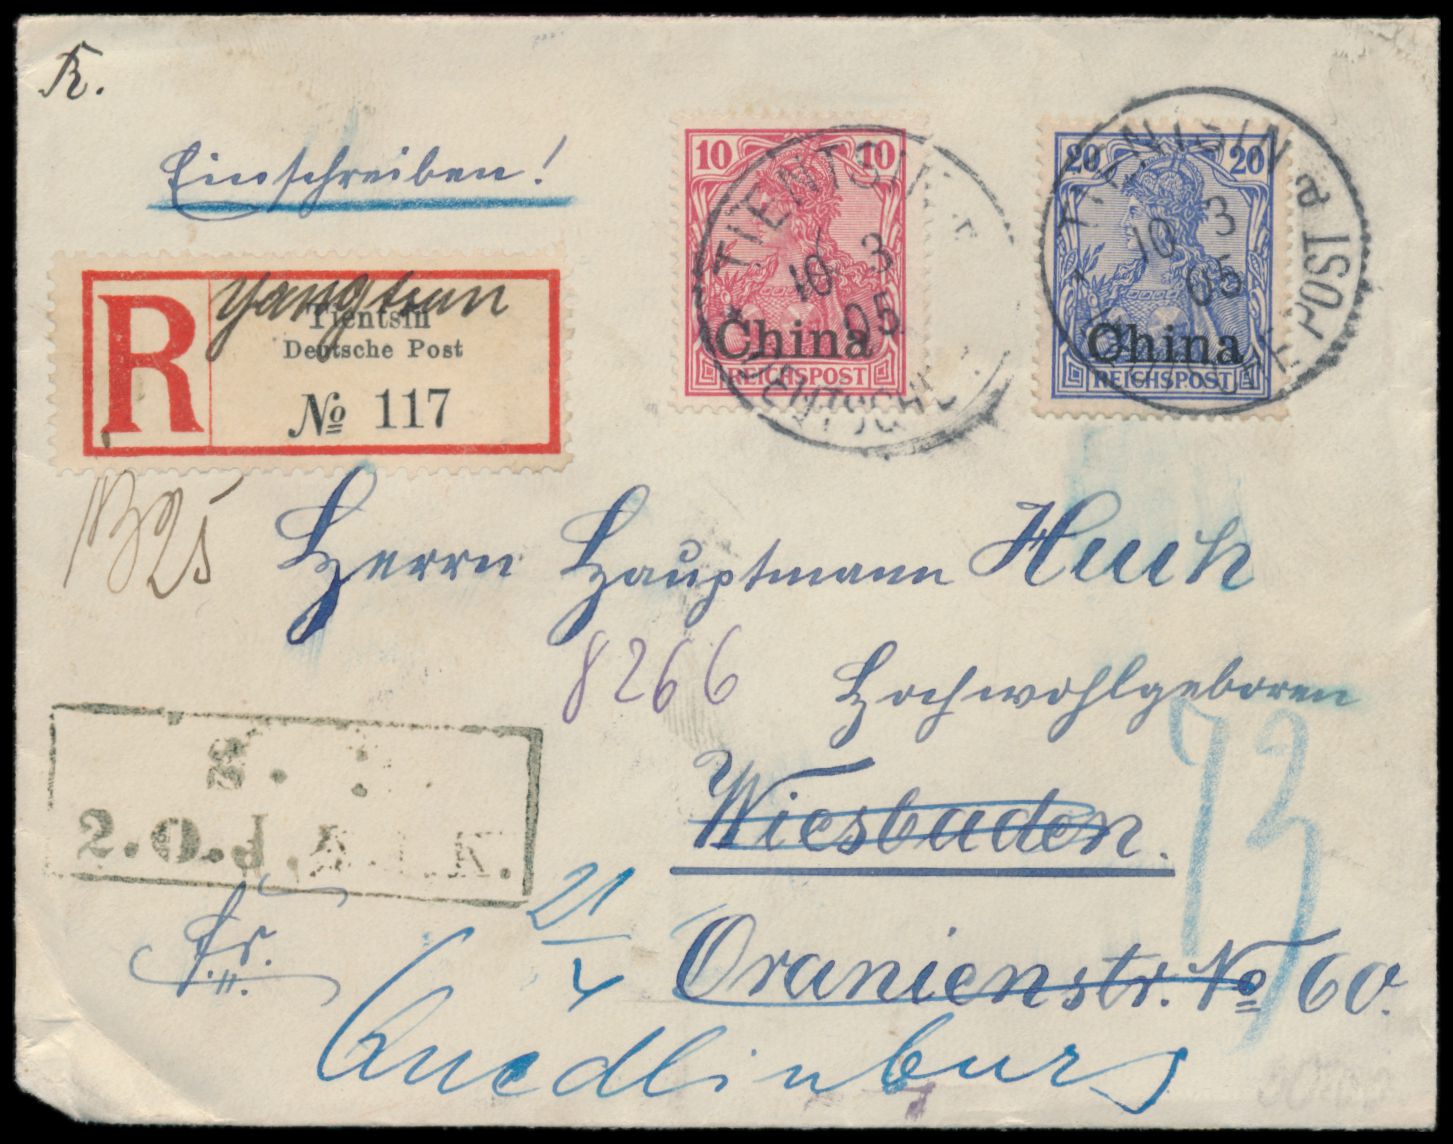 R.
Einschreiben!
10 10
TIENTSIN
10 3
05
DEUTSCHE
China
REICHSPOST
20 20
TIENTSIN
10 3
05
DEUTSCHE POST
China
REICHSPOST
R
Yangtsun
Tientsin
Deutsche Post
№ 117
Herrn Hauptmann Huch
8266
Hochwohlgeboren
Wiesbaden.
21/4
Oranienstr. No 60.
Quedlinburg